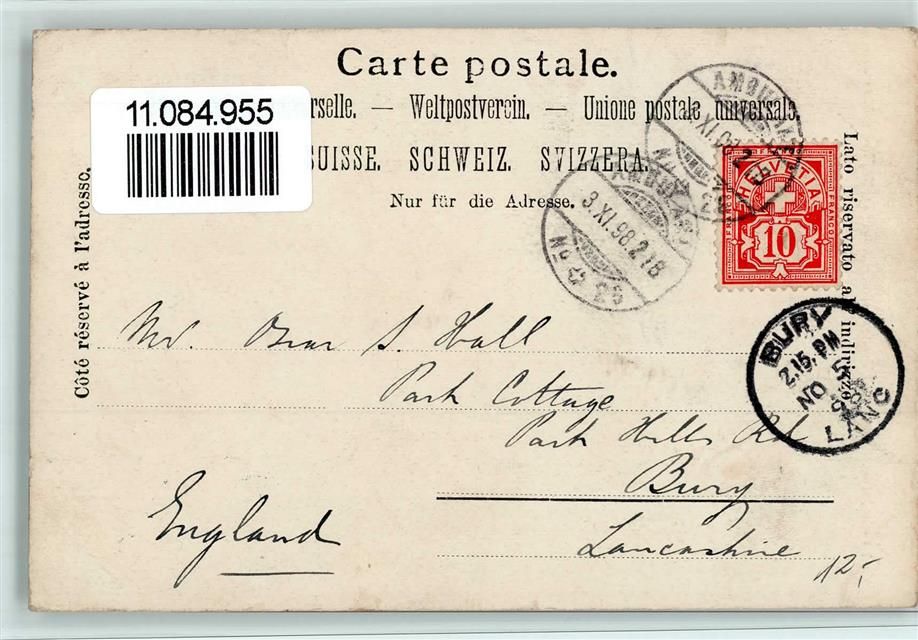 Carte postale.
11.084.955
rselle. — Weltpostverein. — Unione postale universale.
SUISSE. SCHWEIZ. SVIZZERA.
Nur für die Adresse.
Côté réservé à l'adresse.
Lato riservato all'indirizzo
AMBULANT
3.XI.98.21B
No
HELVETIA
FRANCO
10
BURY
2.15.PM
NO 5
98
LANC
Mr. S. Hall
Park Cottage
Park Hills Rd
Bury
England
Lancashire
12,-